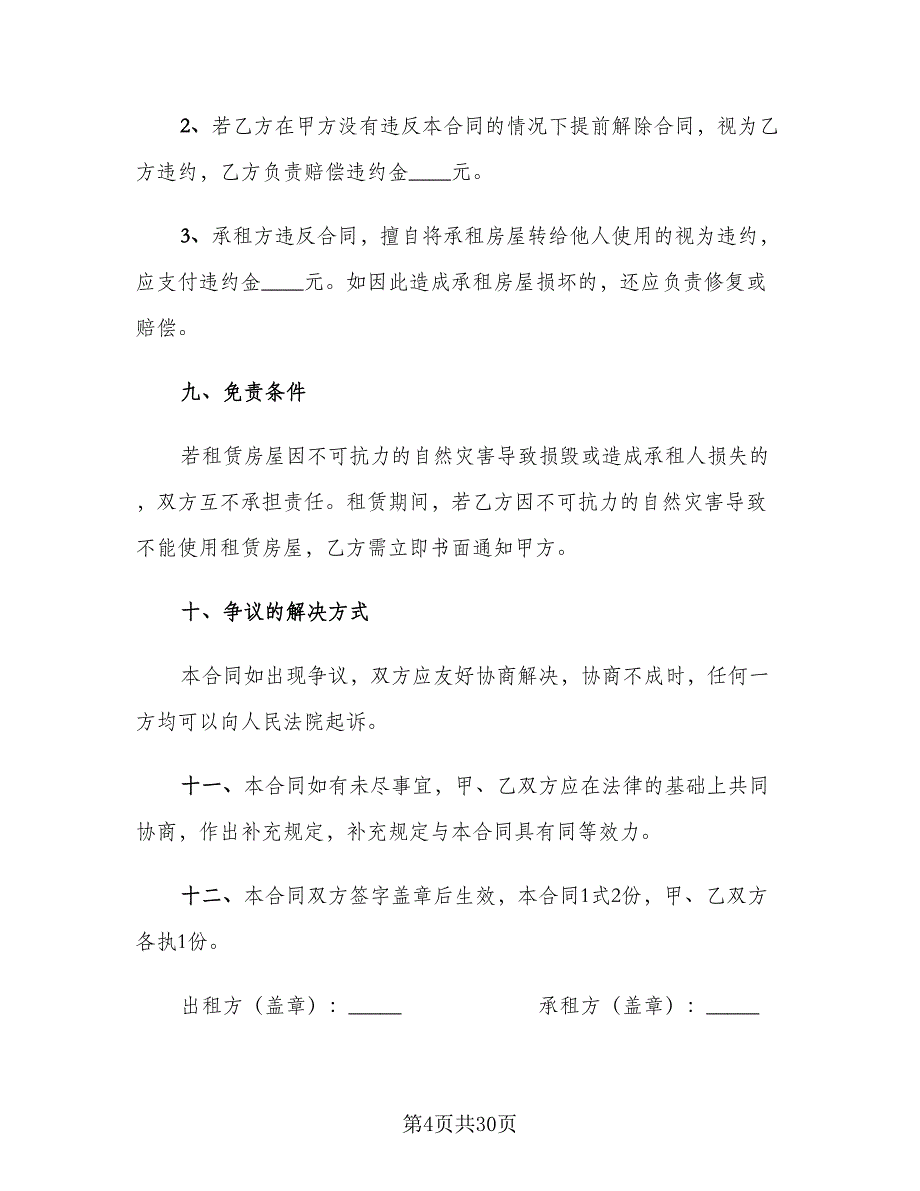 2、若乙方在甲方没有违反本合同的情况下提前解除合同，视为乙
方违约，乙方负责赔偿违约金____元。
3、承租方违反合同，擅自将承租房屋转给他人使用的视为违约，
应支付违约金____元。如因此造成承租房屋损坏的，还应负责修复或
赔偿。
九、免责条件
若租赁房屋因不可抗力的自然灾害导致损毁或造成承租人损失的
，双方互不承担责任。租赁期间，若乙方因不可抗力的自然灾害导致
不能使用租赁房屋，乙方需立即书面通知甲方。
十、争议的解决方式
本合同如出现争议，双方应友好协商解决，协商不成时，任何一
方均可以向人民法院起诉。
十一、本合同如有未尽事宜，甲、乙双方应在法律的基础上共同
协商，作出补充规定，补充规定与本合同具有同等效力。
十二、本合同双方签字盖章后生效，本合同1式2份，甲、乙双方
各执1份。
出租方（盖章）：_____ 承租方（盖章）：_____
第4页共30页